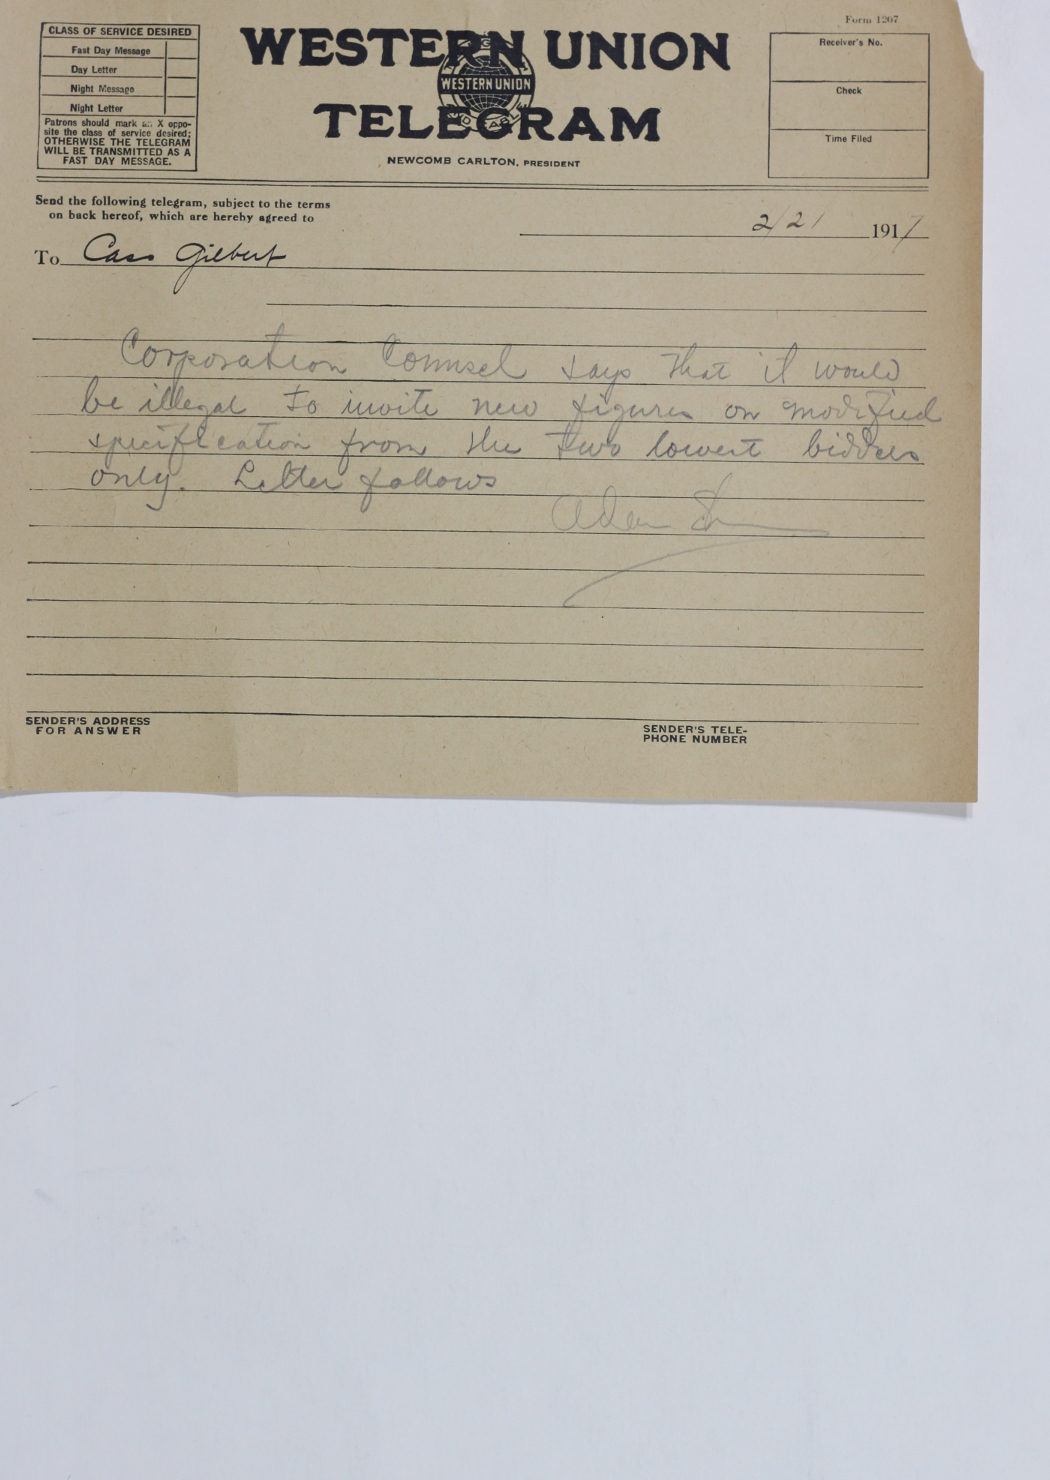 Form 1207
CLASS OF SERVICE DESIRED
Fast Day Message
Day Letter
Night Message
Night Letter
Patrons should mark an X oppo-
site the class of service desired;
OTHERWISE THE TELEGRAM
WILL BE TRANSMITTED AS A
FAST DAY MESSAGE.
WESTERN UNION
WESTERN UNION
TELEGRAM
NEWCOMB CARLTON, PRESIDENT
Receiver's No.
Check
Time Filed
Send the following telegram, subject to the terms
on back hereof, which are hereby agreed to
2/21 1917
To Cass Gilbert
Corporation Counsel says that it would
be illegal to invite new figures on modified
specification from the two lowest bidders
only. Letter follows
SENDER'S ADDRESS
FOR ANSWER
SENDER'S TELE-
PHONE NUMBER